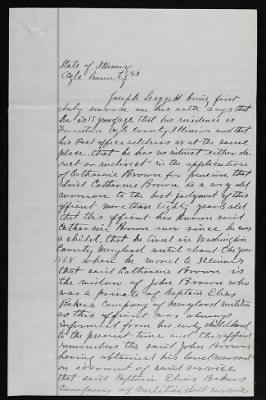 State of Illinois
Ogle County SS
Joseph Leggett being first
duly sworn on his oath says that
he is 55 years of age that his residence is
County, Illinois and that
his Post office address is at the same
place. that he has no interest either di-
rect or indirect in the application
of Catharine Brown for pension, that
said Catharine Brown is a very old
woman to the best judgment of this
affiant more than eighty years old
that this affiant has known said
Catharine Brown ever since he was
a child, that he lived in Washington
County, Maryland until about the year
1868 when he moved to Illinois
that said Catharine Brown is
the widow of John Brown who
was a private of Captain Elias
Bakers Company of Maryland Militia
as this affiant was always
informed from his early childhood
to the present time and this affiant
remembers the said John Brown
having obtained his land warrant
on account of said service
that said Captain Elias Bakers
Company of Militia did service